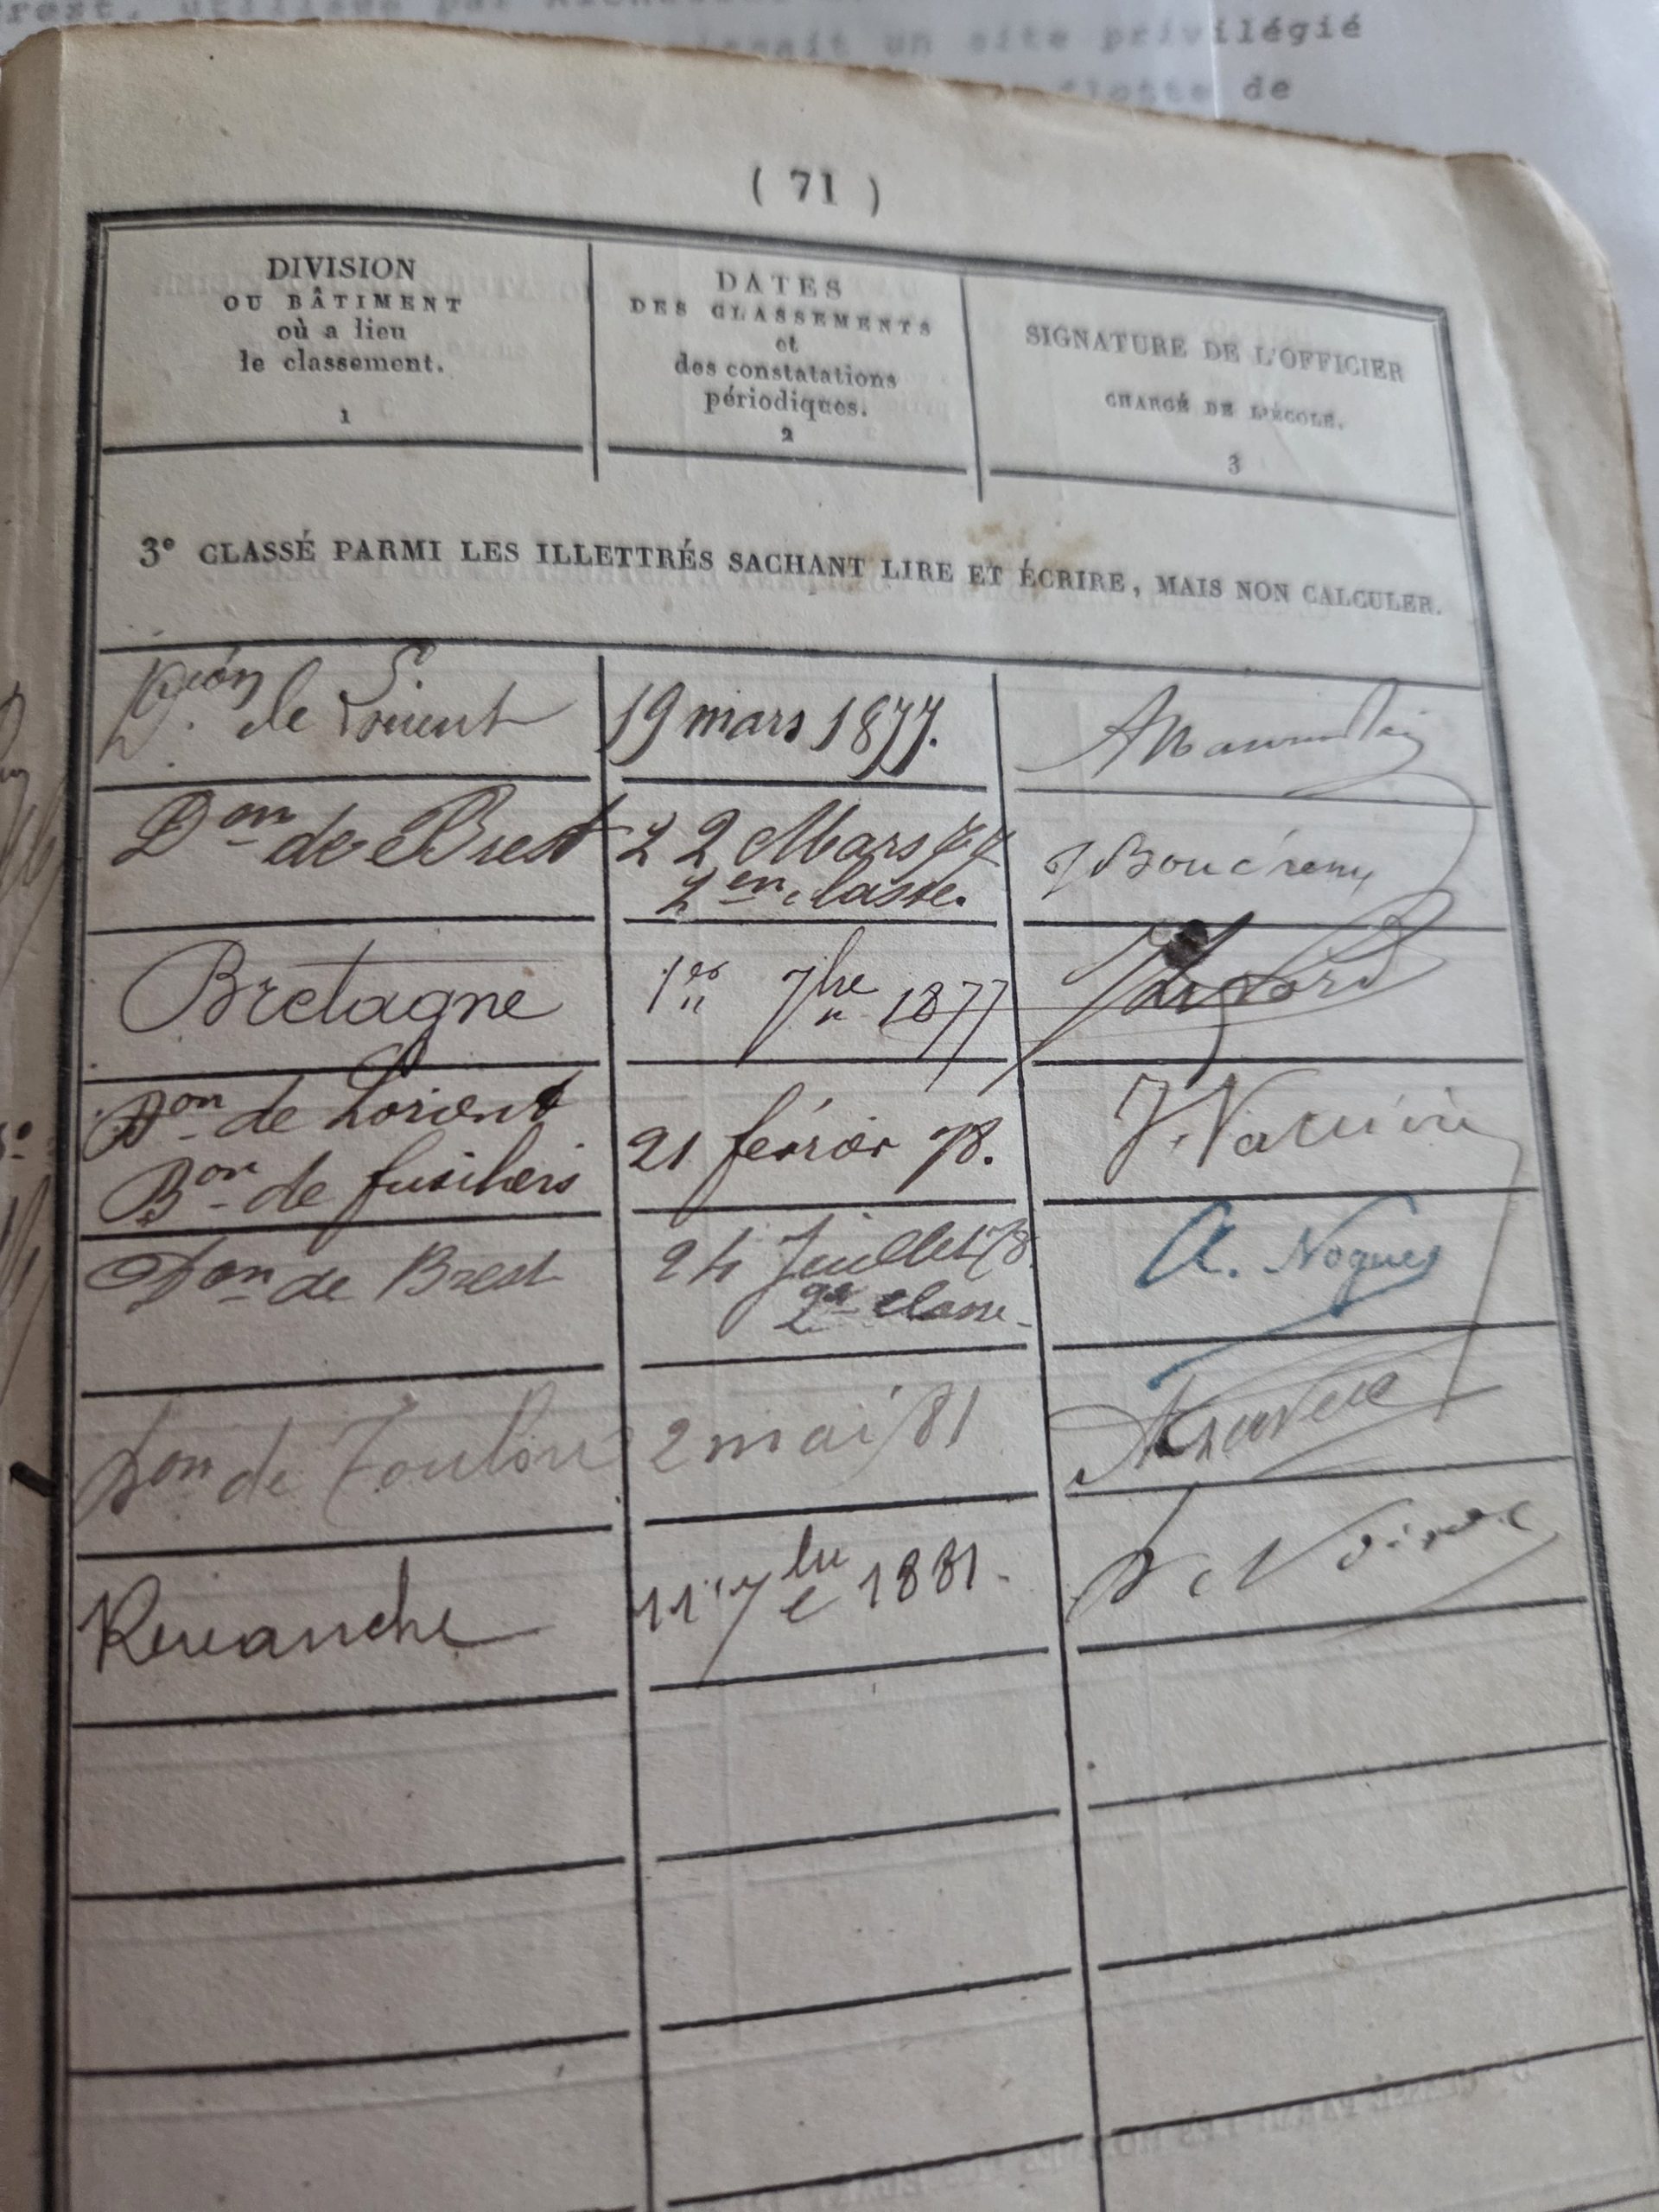 un site privilégié
flotte de
( 71 )
DIVISION
OU BÂTIMENT
où a lieu
le classement.
1
DATES
DES CLASSEMENTS
et
des constatations
périodiques.
2
SIGNATURE DE L'OFFICIER
CHARGÉ DE L'ÉCOLE.
3
3e CLASSÉ PARMI LES ILLETTRÉS SACHANT LIRE ET ÉCRIRE, MAIS NON CALCULER.
de Lorient 19 mars 1877.
Don de Brest 22 Mars 77
2en classe.
Bretagne 1er 7bre 1877
Don de Lorient
Bon de fusiliers 21 février 78.
Don de Brest 24 Juillet 78 A. Nogues
2e classe
Don de Toulon 2 mai 81
Revanche 11 7bre 1881.